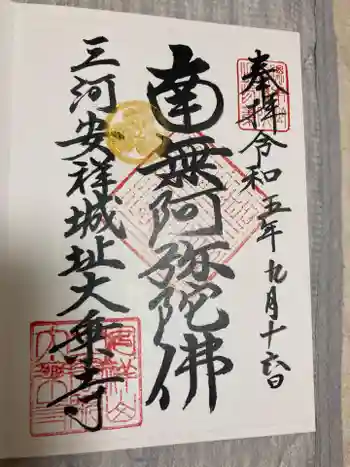 奉拝
令和五年九月十六日
南無阿弥陀佛
三河安祥城址大乗寺